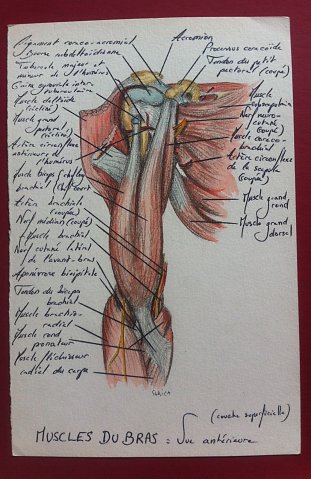 Ligament coraco-acromial
Bourse subdeltoïdienne
Tubercule majeur et
mineur de l'humérus
Gaine synoviale inter-
tuberculaire
Muscle deltoïde
(récliné)
Muscle grand
pectoral
(récliné)
Artère circonflexe
antérieure de
l'humérus
Muscle biceps
brachial
Artère brachiale
(coupée)
Nerf médian (coupé)
Muscle brachial
Nerf cutané latéral
de l'avant-bras
Aponévrose bicipitale
Tendon du biceps
brachial
Muscle brachio-
radial
Muscle rond
pronateur
Muscle fléchisseur
radial du carpe
Acromion
Processus coracoïde
Tendon du petit
pectoral (coupé)
Muscle
subscapulaire
Nerf musculo-
cutané
(coupé)
Muscle coraco-
brachial
Artère circonflexe
de la scapula
(coupée)
Muscle grand
rond
Muscle grand
dorsal
(couche superficielle)
MUSCLES DU BRAS : Vue antérieure